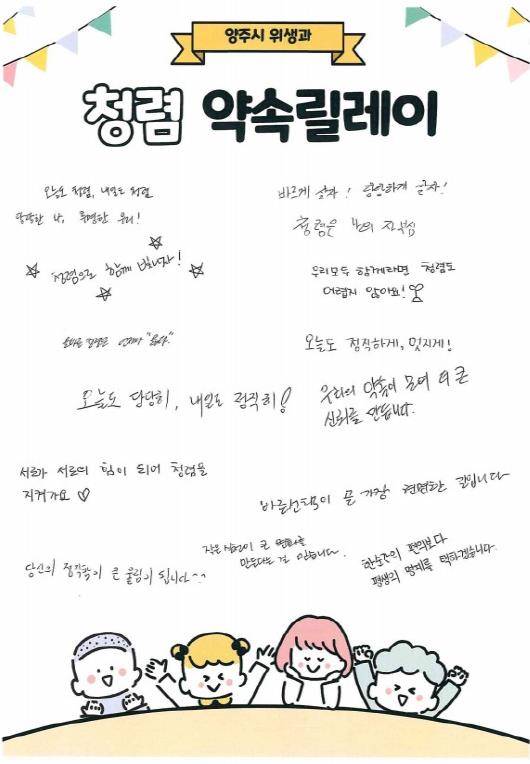 양주시 위생과
청렴 약속릴레이
오늘도 청렴, 내일도 청렴
당당한 나, 투명한 우리!
바르게 살자! 당당하게 살자!
청렴은 나의 자존심
청렴으로 함께 빛나자!
우리모두 함께라면 청렴도
어렵지 않아요!
오늘도 정직하게, 멋지게!
오늘도 당당히, 내일도 정직히!
우리의 약속이 모여 더 큰
신뢰를 만듭니다.
서로가 서로의 힘이 되어 청렴을
지켜가요 ♡
바른선택이 곧 가장 현명한 길입니다
작은 실천이 큰 변화를
만든다는 걸 믿습니다.
당신의 정직함이 큰 울림이 됩니다^^
한순간의 편의보다
평생의 명예를 택하겠습니다.